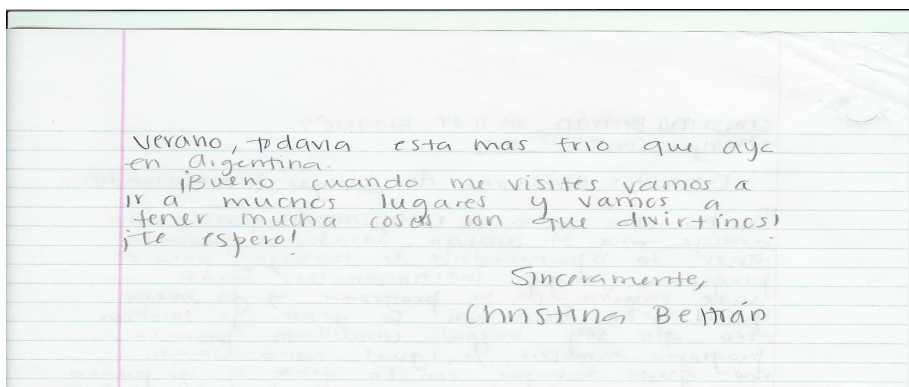 verano, todavia esta mas frio que aya
en argentina.
¡Bueno cuando me visites vamos a
ir a muchos lugares y vamos a
tener mucha cosas con que divirtinos!
¡Te espero!
Sinceramente,
Christina Beltrán